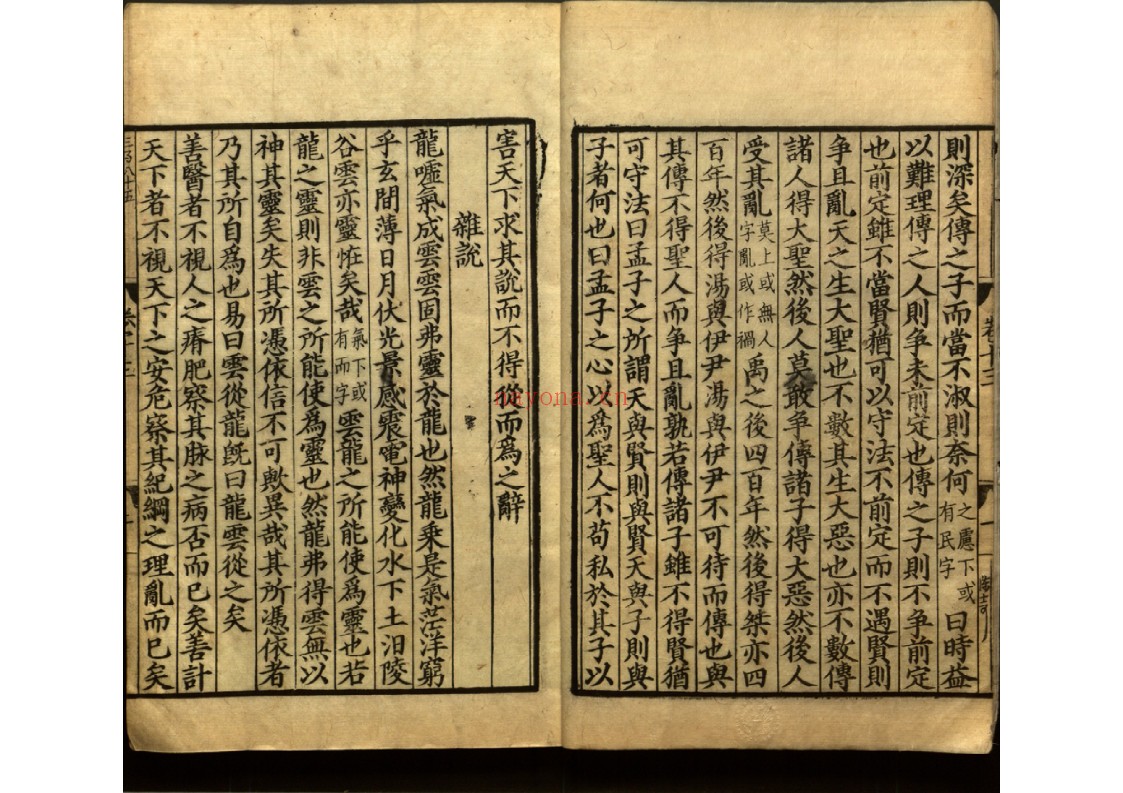 則深矣傳之子而當不淑則奈何之慮下或有民字曰時益
以難理傳之人則爭未前定也傳之子則不爭前定
也前定雖不當賢猶可以守法不前定而不遇賢則
爭且亂天之生大聖也不數其生大惡也亦不數傳
諸人得大聖然後人莫敢爭傳諸子得大惡然後人
受其亂莫上或無人字亂或作禍禹之後四百年然後得桀亦四
百年然後得湯與伊尹湯與伊尹不可待而傳也與
其傳不得聖人而爭且亂孰若傳諸子雖不得賢猶
可守法曰孟子之所謂天與賢則與賢天與子則與
子者何也曰孟子之心以為聖人不苟私於其子以
害天下求其說而不得從而爲之辭
雜說
龍噓氣成雲雲固弗靈於龍也然龍乘是氣茫洋窮
乎玄間薄日月伏光景感震電神變化水下土汩陵
谷雲亦靈恠矣哉氣下或有而字雲龍之所能使爲靈也若
龍之靈則非雲之所能使爲靈也然龍弗得雲無以
神其靈矣失其所憑依信不可歟異哉其所憑依者
乃其所自爲也易曰雲從龍旣曰龍雲從之矣
善醫者不視人之瘠肥察其脉之病否而已矣善計
天下者不視天下之安危察其紀綱之理亂而已矣
三百八十五